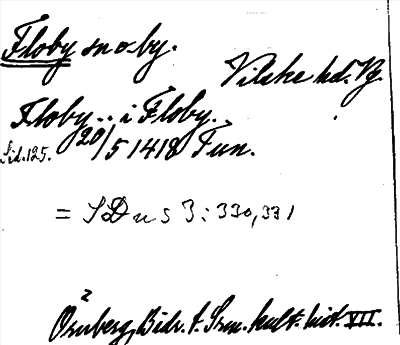 Floby sn o by.
Vilske hd. Vg.
Floby.. i Floby..
Sid. 125. 20/5 1418 Tun.
= SD n s 3: 330, 331
2
Bidr. t. Sv. kult. hist. VII.